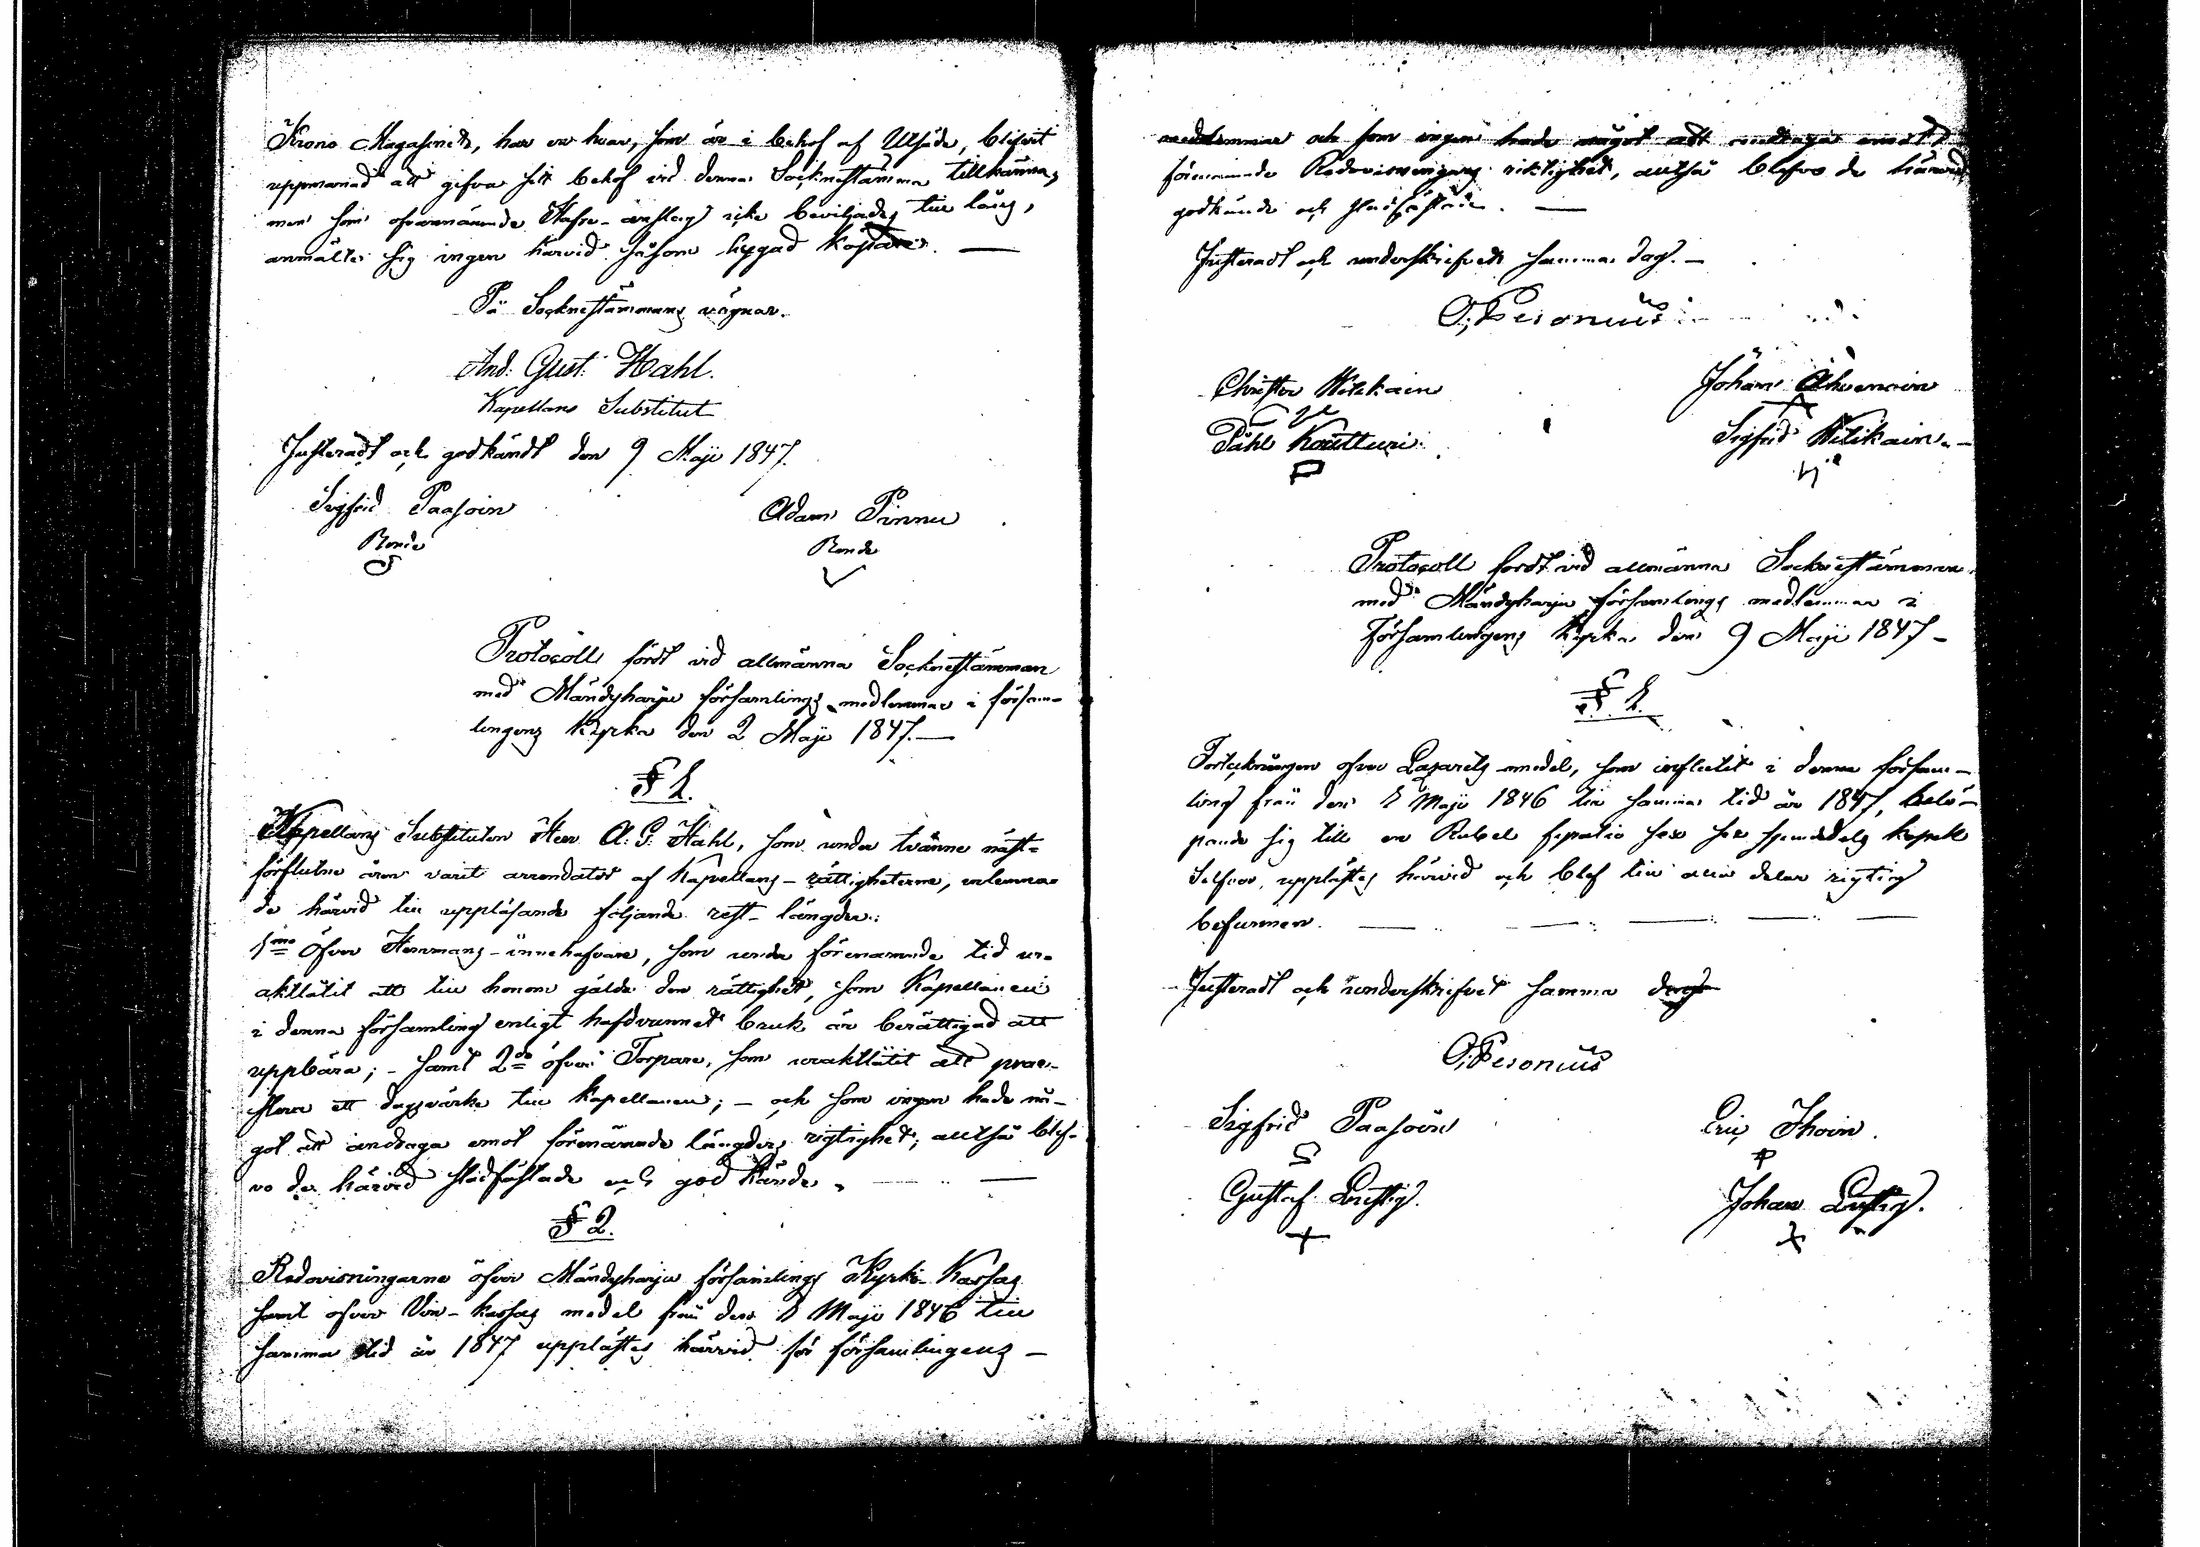 Krono Magasinets, har en hvar, som är i behof af Utsäde, blifvit
uppmanad att gifva sitt behof vid denna Socknestämma tillkänna,
men som ofvannämnde Hafre-anslag icke beviljades till låns,
anmälte sig ingen härvid såsom hugad köpare. —
På Socknestämmans vägnar.
And: Gust: Hahl.
Kapellans Substitut
Justeradt och godkändt den 9 Maji 1847.
Sigfrid Paasoin
Adam Pinnu
Bonde
Bonde
Protocoll fördt vid allmänna Socknestämman
med Mändyharju församlings medlemmar i försam-
lingens kyrka den 2 Maji 1847. —
§ 1.
Kapellans Substituten Herr A. G. Hahl, som under tvänne näst-
förflutne åren varit arrendator af Kapellans-rättigheterne, inlemna-
de härvid till uppläsande följande rest-längder:
1mo Öfver Hemmans-innehafvare, som under förenämnde tid u-
aktlåtit att till honom gälda den rättighet, som Kapellanen
i denna församling enligt häfdvunnet bruk är berättigad att
uppbära; - samt 2do öfver Torpare, som uraktlåtit att præ-
stera ett dagsvärke till kapellanen; — och som ingen hade nå-
got att andraga emot förenämnde längders rigtighet; alltså blef-
vo de härvid stadfästade och godkände. —
§ 2.
Redovisningarne öfver Mändyharju församlings Kyrko-Kassas
samt öfver Vin-kassas medel från den 1 Maji 1846 till
samma tid år 1847 upplästes härvid för församlingens —
medlemmar och som ingen hade något att andraga emot
förenämnde Redovisningars riktighet, alltså blefvo de härvid
godkände och stadfästade. —
Justeradt och underskrifvet samma dag. —
O. Pesonius
Christer Hilikain
Johan Ahvenain
Påhl Koutturi
Sigfrid Hilikain
Protocoll fördt vid allmänna Socknestämman
med Mändyharju församlings medlemmar i
Församlingens Kyrka den 9 Maji 1847 —
§ 1.
Förteckningen öfver Lazaretts-medel, som influtit i denna försam-
ling från den 1 Maji 1846 till samma tid år 1847, belö-
pande sig till en Rubel kopek
Silfver, upplästes härvid och blef till alla delar rigtig
befunnen. —
Justeradt och underskrifvet samma dag
O. Pesonius
Sigfrid Paasoin
Eric Ihoin.
Gustaf Lustig.
Johan Lustig.